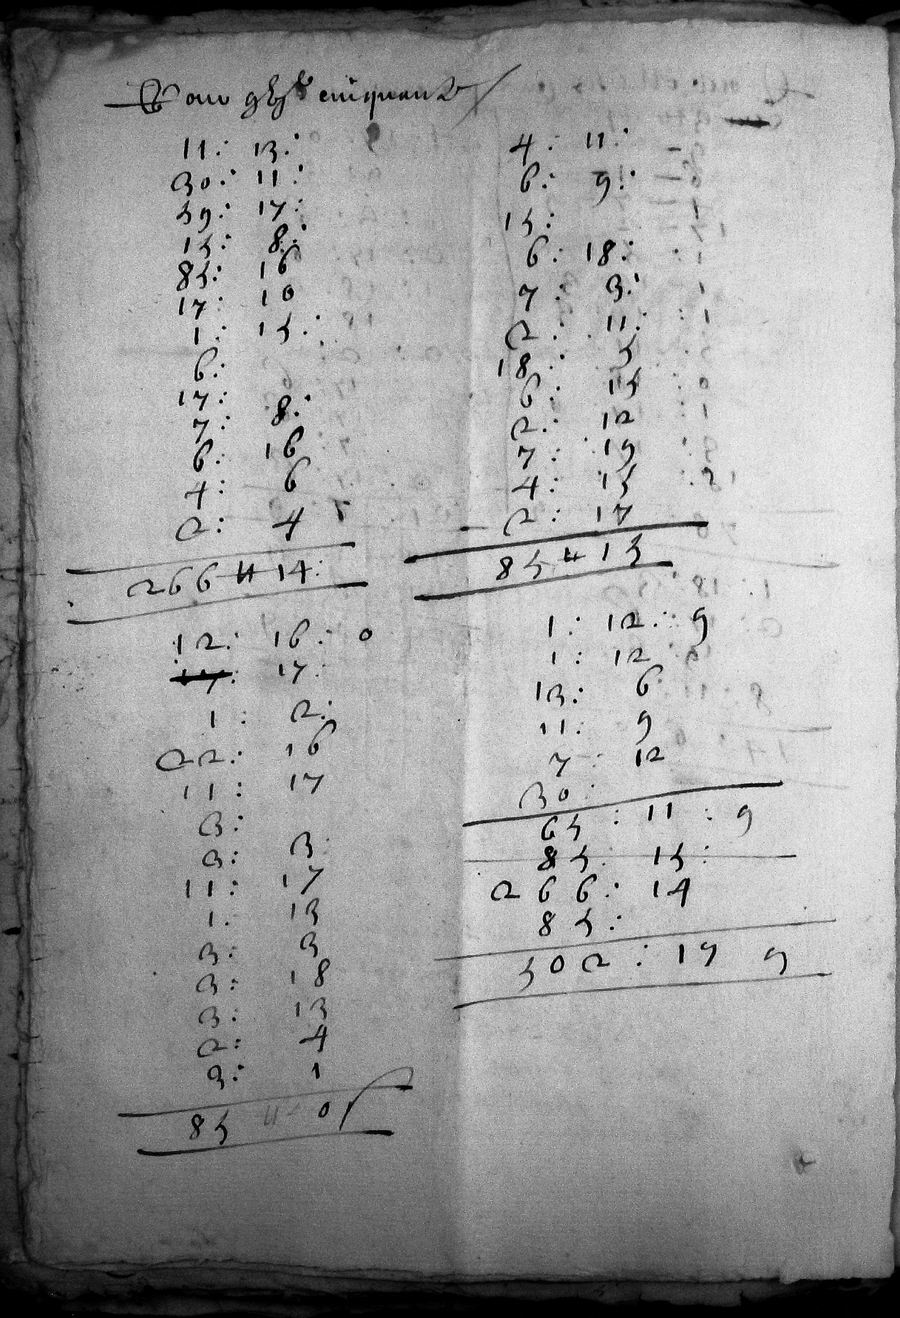 Pour cinquante
11: 13:
30: 11:
59: 17:
15: 8:
85: 16
17: 10
1: 15:
6:
17:
7: 8:
6: 16
4: 6
2: 4
266 # 14:
12: 16: 0
17: 17:
1 2:
22: 16
11: 17
3:
3: 3
11: 17
1: 13
3: 3
3: 18
3: 13
2: 4
3: 1
85 # 0
4: 11:
6: 9:
15:
6: 18:
7: 3:
2: 11:
18: 5
6: 15
2: 12
7: 19
4: 15
2: 17
85 # 15
1: 12: 9
1: 12
13: 6
11: 9
7: 12
30:
65: 11: 9
85: 15:
266: 14
85:
502: 19 9